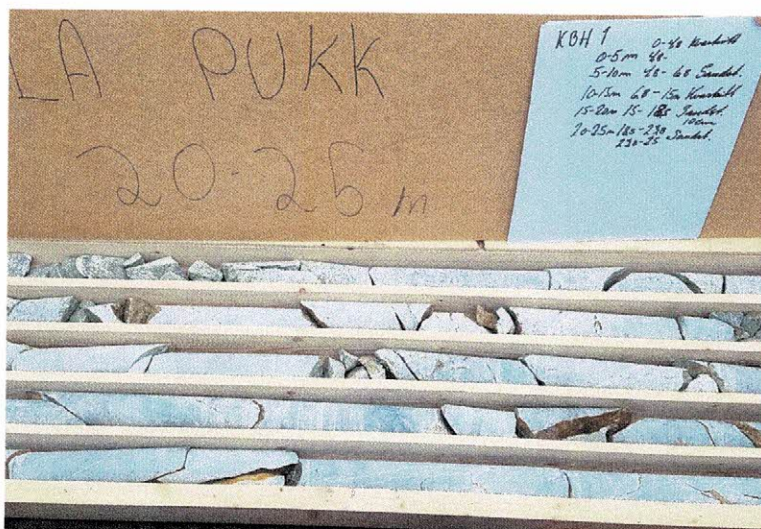 LA PUKK
20-25 m
KBH 1 0-48
0-5m 48-
5-10m 48-68 Sandst.
10-15m 68-15m
15-20m 15-185 Sandst.
10cm
20-25m 185-230
230-25 Sandst.